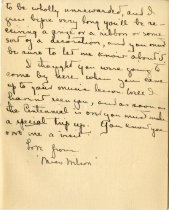 to be wholly unrewarded, and I
guess before very long you'll be re-
ceiving a grant or a ribbon or some
sort of a decoration, and you must
be sure to let me know about it
I thought you were going to
come by here when you came
up to your music lesson but I
haven't seen you, and as soon as
the Centennial is over you must make
a special trip up. You know you
owe me a visit.
Love from
"Miss Wilson"